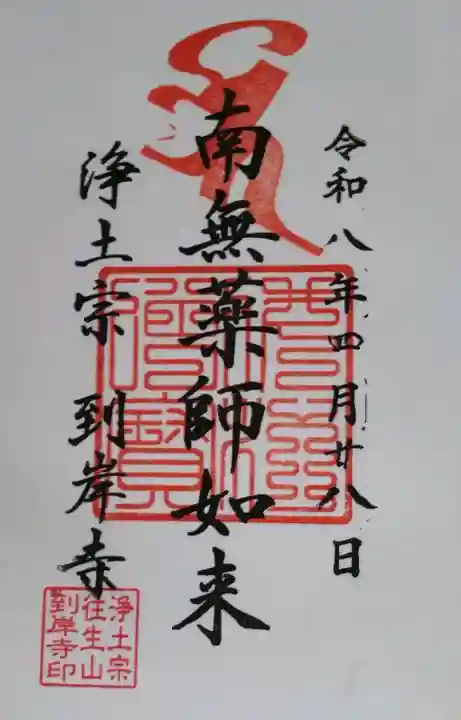 令和八年四月廿八日
南無薬師如来
浄土宗 到岸寺
浄土宗
往生山
到岸寺印